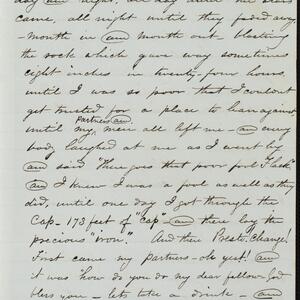 day and night, and day until the stars
came, all night until they faded away
-month in and month out- blasting
the rock which gave way sometimes
eight inches in twenty-four hours,
until I was so poor that I couldnt
get trusted for a place to lean against
Partners and
until my men all left me - and every
body laughed at me as I went by
and said "There goes that poor fool
and I knew I was a fool as well as they
did, until one day I got through the
Cap - 173 feet of "Cap" - and there lay the
precious "iron." And then Presto, Change!
First came my partners - oh yes! and
it was "how do you do my dear fellow - God
bless you - lets take a drink - and